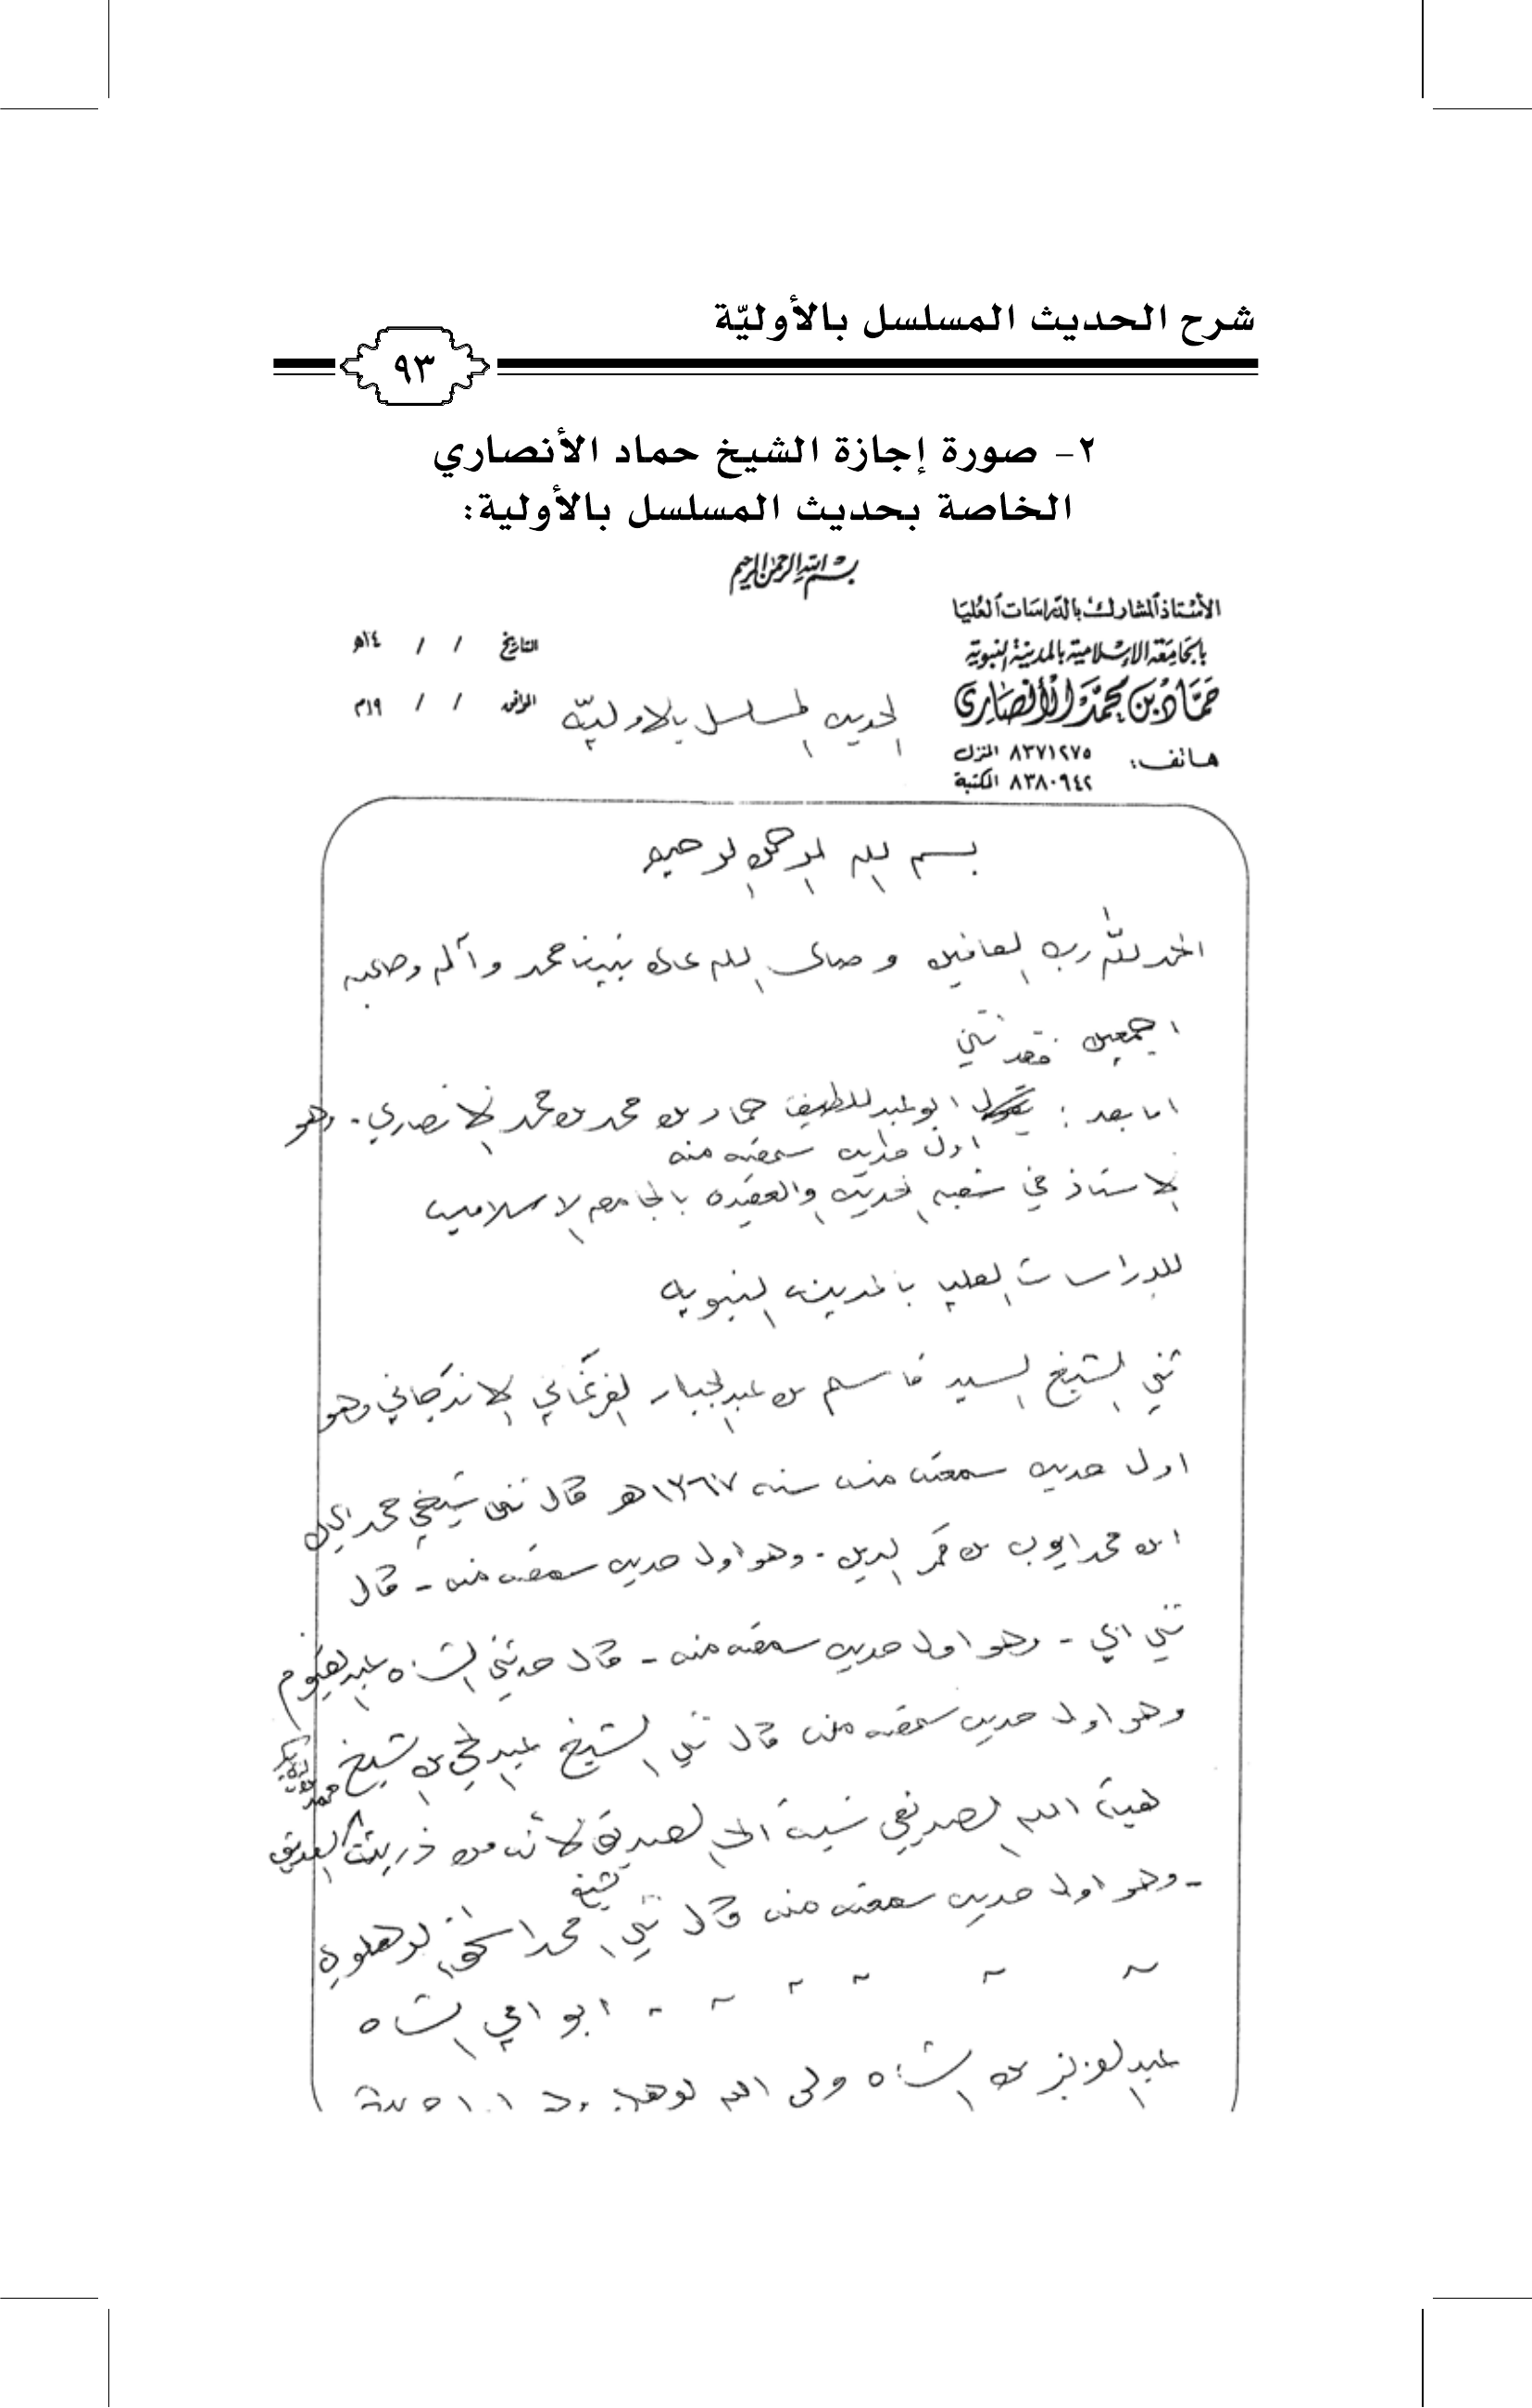 شرح الحديث المسلسل بالأوليّة
٩٣
٢- صورة إجازة الشيخ حماد الأنصاري
الخاصة بحديث المسلسل بالأولية:
بسم الله الرحمن الرحيم
الأستاذ المشارك بالدراسات العليا
بالجامعة الإسلامية بالمدينة النبوية
حماد بن محمد الأنصاري
هاتف: ٨٣٧١٢٧٥ المنزل
٨٣٨٠٩٤٢ المكتبة
التاريخ / / ١٤هـ
الموافق / / ١٩م
الحديث المسلسل بالاولية
بسم الله الرحمن الرحيم
الحمد لله رب العالمين وصلى الله على نبينا محمد وآله وصحبه
اجمعين
فقد ثني
اما بعد : ابو عبد اللطيف حماد بن محمد بن محمد الانصاري - وهو
اول حديث سمعته منه
الاستاذ في شعبة الحديث والعقيدة بالجامعة الاسلامية
للدراسات العليا بالمدينة النبوية
ثني الشيخ السيد قاسم بن عبد الجبار الفرغاني الاندجاني وهو
اول حديث سمعته منه سنه ١٣٦٧هـ قال ثنى شيخي محمد
ابن محمد ايوب بن قمر الدين - وهو اول حديث سمعته منه - قال
ثني ابي - وهو اول حديث سمعته منه - قال حدثني الشاه عبد القيوم
وهو اول حديث سمعته منه قال ثني الشيخ عبد الحي بن الشيخ
هبة الله الصديقي نسبة الى الصديق لأنه من ذرية الصديق
- وهو اول حديث سمعته منه قال ثني الشيخ محمد اسحق الدهلوي
ابو امي الشاه
عبد العزيز بن الشاه ولى الله